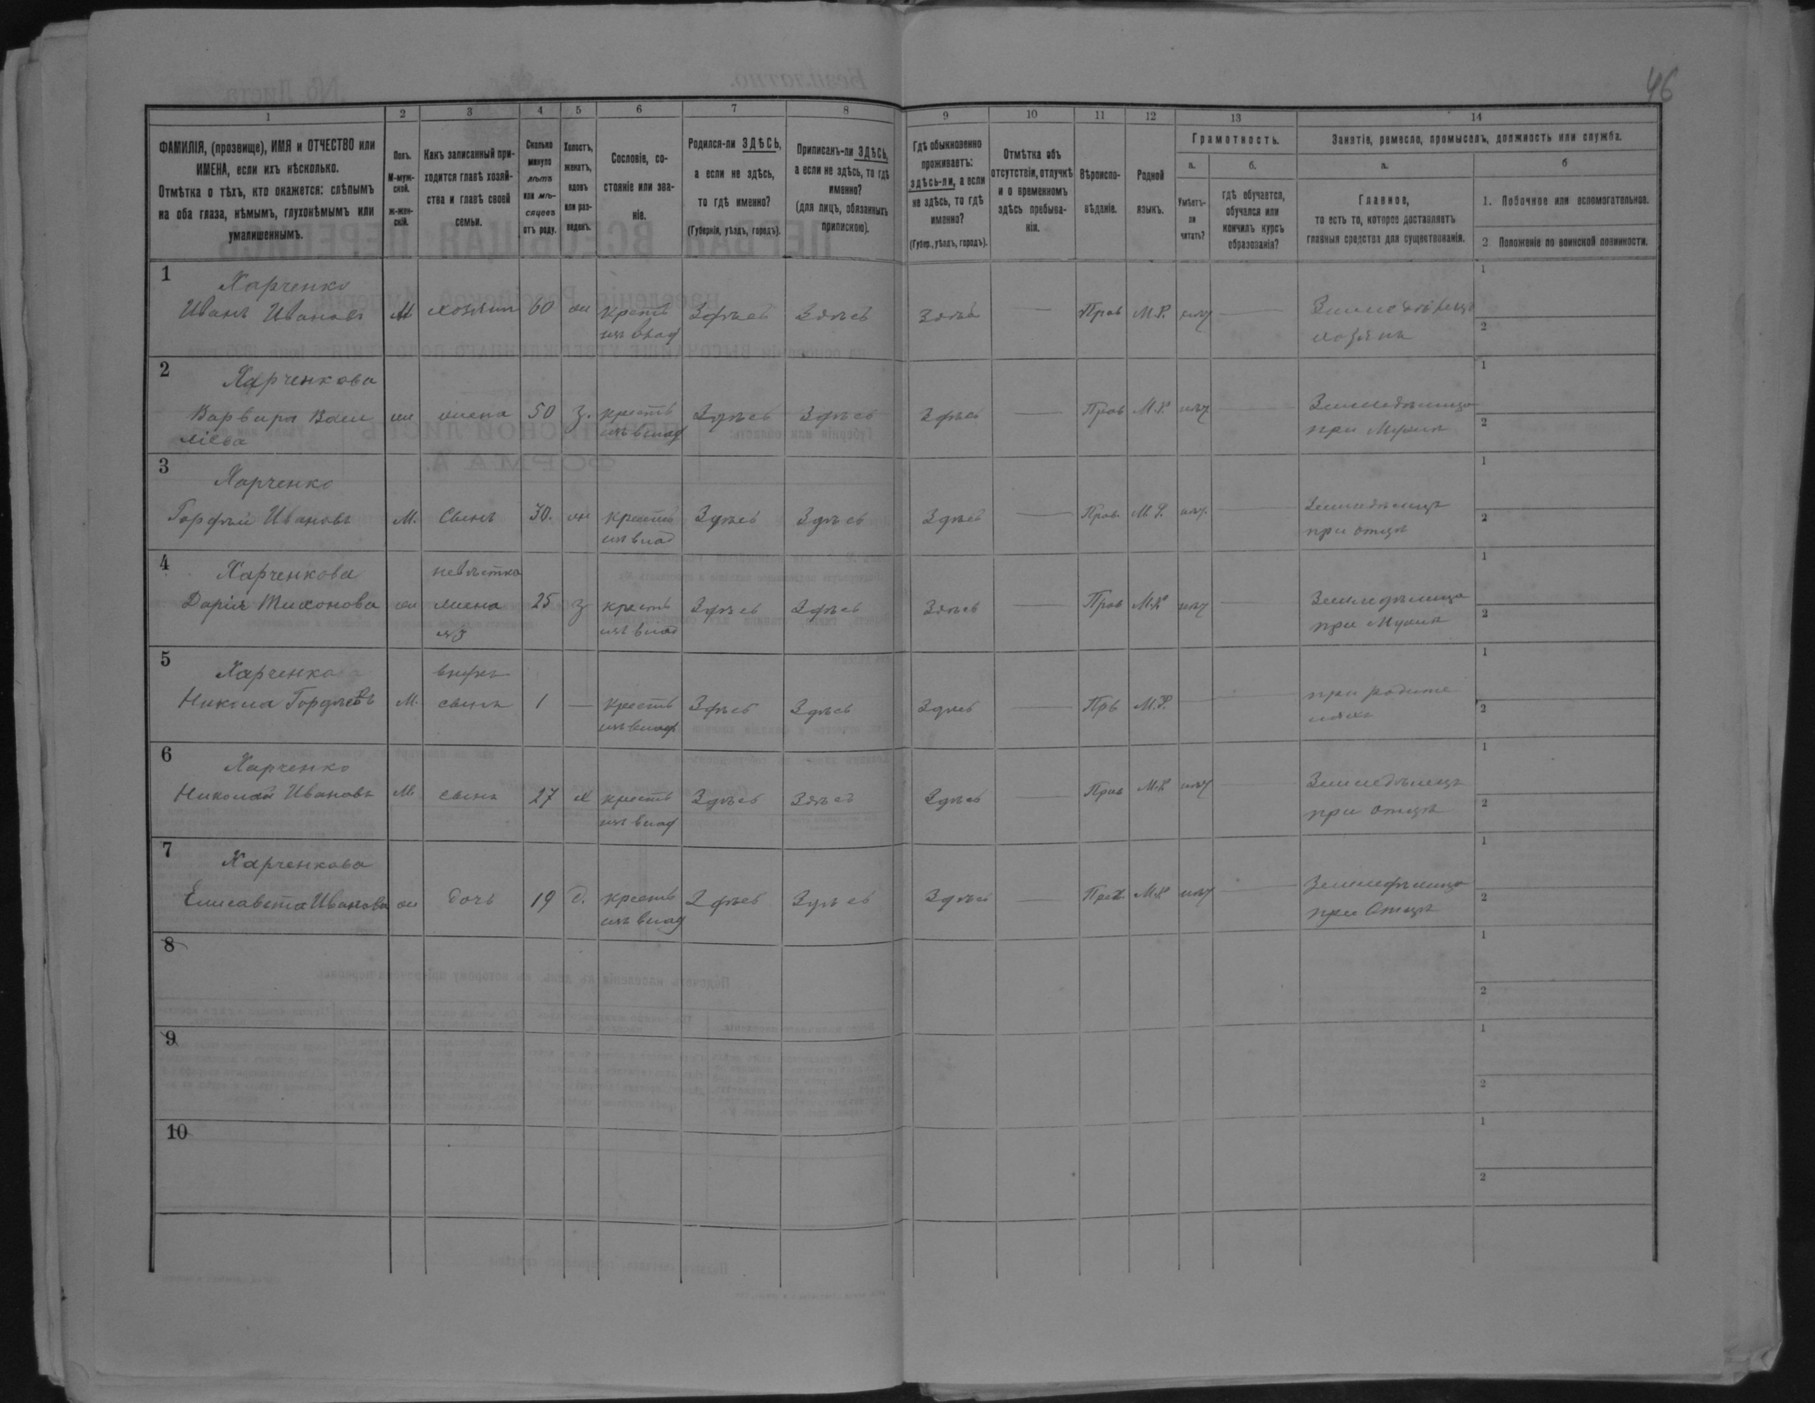 46
1 2 3 4 5 6 7 8 9 10 11 12 13 14
ФАМИЛІЯ, (прозвище), ИМЯ и ОТЧЕСТВО или
ИМЕНА, если ихъ нѣсколько.
Отмѣтка о тѣхъ, кто окажется: слѣпымъ
на оба глаза, нѣмымъ, глухонѣмымъ или
умалишеннымъ.
Полъ.
М-муж-
ской.
Ж-жен-
скій.
Какъ записанный при-
ходится главѣ хозяй-
ства и главѣ своей
семьи.
Сколько
минуло
лѣтъ
или мѣ-
сяцевъ
отъ роду.
Холостъ,
женатъ,
вдовъ
или раз-
веденъ.
Сословіе, со-
стояніе или зва-
ніе.
Родился-ли ЗДѢСЬ,
а если не здѣсь,
то гдѣ именно?
(Губернія, уѣздъ, городъ).
Приписанъ-ли ЗДѢСЬ,
а если не здѣсь, то гдѣ
именно?
(для лицъ, обязанныхъ
припискою).
Гдѣ обыкновенно
проживаетъ:
здѣсь-ли, а если
не здѣсь, то гдѣ
именно?
(Губер., уѣздъ, городъ).
Отмѣтка объ
отсутствіи, отлучкѣ
и о временномъ
здѣсь пребыва-
ніи.
Вѣроиспо-
вѣданіе.
Родной
языкъ.
Грамотность.
а.
Умѣетъ-
ли
читать?
б.
гдѣ обучается,
обучался или
кончилъ курсъ
образованія?
Занятіе, ремесло, промыселъ, должность или служба.
а.
Главное,
то есть то, которое доставляетъ
главныя средства для существованія.
б
1. Побочное или вспомогательное.
2 Положеніе по воинской повинности.
1
Харченко
Иванъ Ивановъ М хозяинъ 60 жн Здѣсь Здѣсь Здѣсь — Прав М.Р. нѣт —
крестъ
изъ влад
Земледѣлецъ
хозяинъ
1
2
2
Харченкова
Варвара Васи
ліева
жн жена 50 З. Здѣсь Здѣсь Здѣсь — Прав М.Р нѣт —
крестъ
изъ влад
Земледѣлица
при Мужѣ
1
2
3
Харченко
Гордѣй Ивановъ М. Сынъ 30. жн Здѣсь Здѣсь Здѣсь — Прав. М.Р. нѣт. —
крестъ
изъ влад
Земледѣлецъ
при отцѣ
1
2
4
Харченкова
Дарія Тихонова жн
невѣстка
жена
25 З Здѣсь Здѣсь Здѣсь — Прав М.Р нѣт —
крестъ
изъ влад
Земледѣлица
при Мужѣ
1
2
5
Харченко
Никола Гордѣевъ М.
внукъ
сынъ
1 — Здѣсь Здѣсь Здѣсь — Прв М.Р. —
крестъ
изъ влад
при родите
ляхъ
1
2
6
Харченко
Николай Ивановъ М. сынъ 27 х Здѣсь Здѣсь Здѣсь — Прав М.Р нѣт —
крестъ
изъ влад
Земледѣлецъ
при отцѣ
1
2
7
Харченкова
Елисавета Иванова жн дочь 19 д. Здѣсь Здѣсь Здѣсь — Прав М.Р нѣт —
крестъ
изъ влад
Земледѣлица
при Отцѣ
1
2
8
1
2
9
1
2
10
1
2